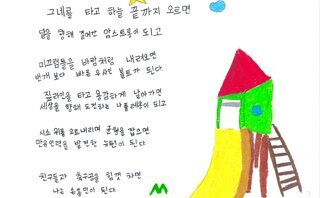 그네를 타고 하늘 끝까지 오르면
달을 향해 걸어간 암스트롱이 되고
미끄럼틀을 바람처럼 내려오면
번개 보다 빠른 우사인 볼트가 된다
짚라인을 타고 용감하게 날아가면
세상을 향해 도전하는 나폴레옹이 되고
시소 위를 오르내리며 균형을 잡으면
만유인력을 발견한 뉴턴이 된다
친구들과 축구공을 힘껏 차면
나는 손흥민이 된다